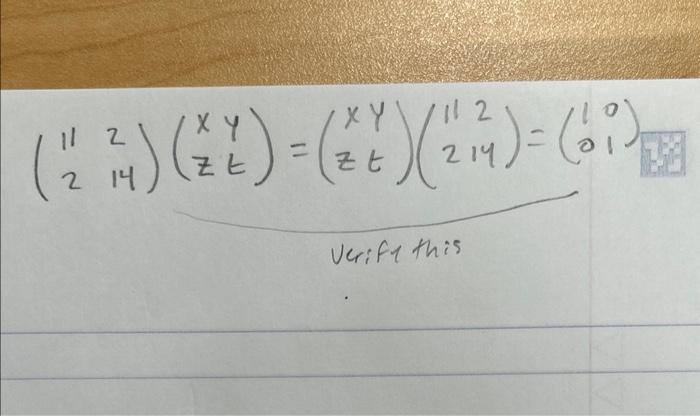 (11 2 2 14) (x y z t) = (x y z t) (11 2 2 14) = (1 0 0 1)
Verify this